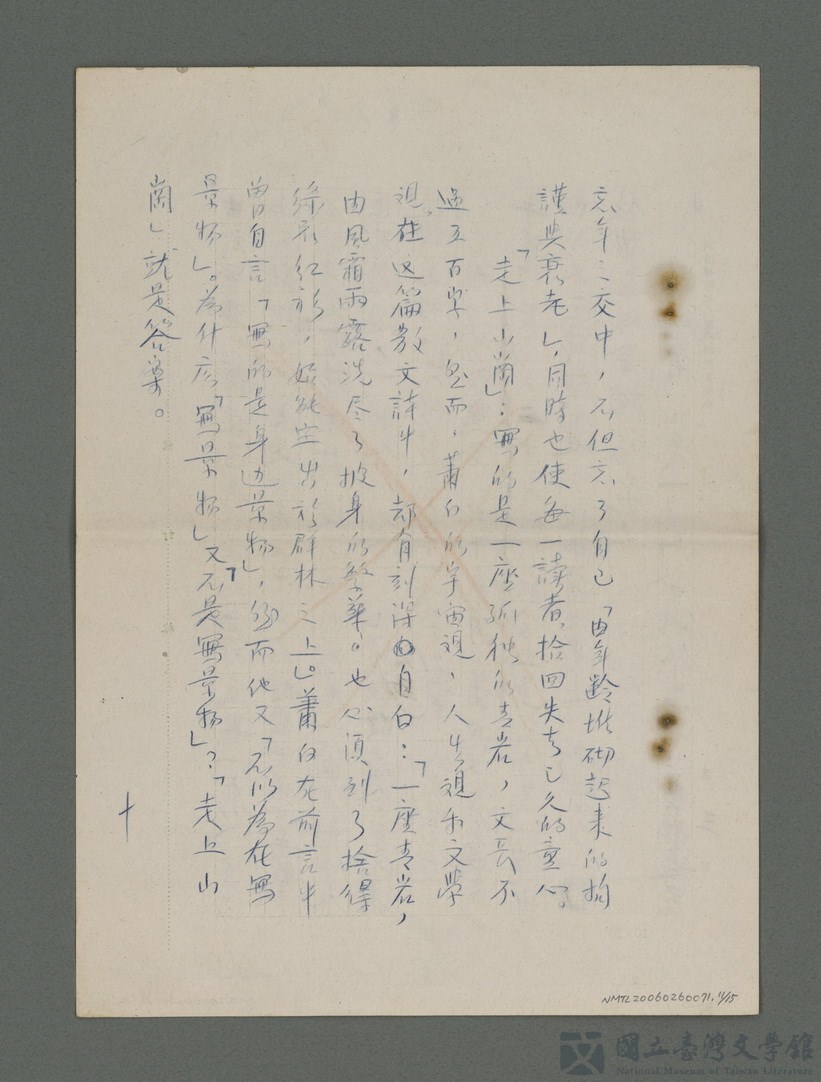 忘年之交中，不但忘了自己「由年齡堆砌起來的拘
謹與衰老」，同時也使每一讀者，拾回失去已久的童心。
「走上山崗」：寫的是一座孤獨的青岩，文長不
過五百字，然而，蕭白的宇宙視，人生視和文學
視，在這篇散文詩中，却有刻深的自白：「一座青岩，
由風霜雨露洗尽了披身的繁華。也必須到了捨得
綠衫紅衫，始能突出於群林之上」。蕭白在前言中
曾自言「寫的是身边景物」，然而他又「不以為在寫
景物」。為什麼「寫景物」又「不是寫景物」？「走上山
崗」就是答案。
十
NMTL20060260071, 11/15
國立臺灣文學館
National Museum of Taiwan Literature